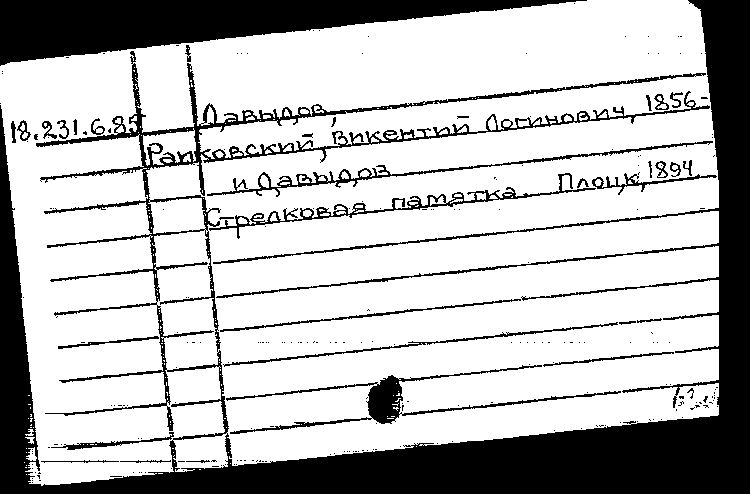 18.231.6.85 Давыдов,
Рапковский, Викентий Логинович, 1856-
и Давыдов
Стрелковая памятка. Плоцк, 1894